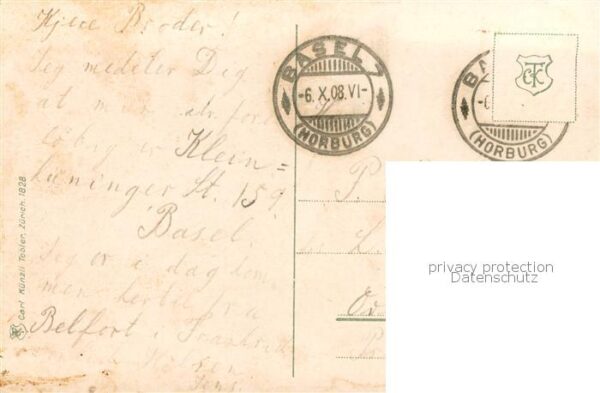 Kjære Broder!
Jeg meddeler Dig
at min
er Klein=
huninger St. 159
Basel.
Jeg er i dag kom
men hertil fra
Belfort i Frankrig
Hilsen
Jens.
BASEL 7
-6.X.08.VI-
(HORBURG)
BA
-6
(HORBURG)
CTK
P.
L.
Od
Carl Künzli Tobler, Zürich. 1828.
privacy protection
Datenschutz